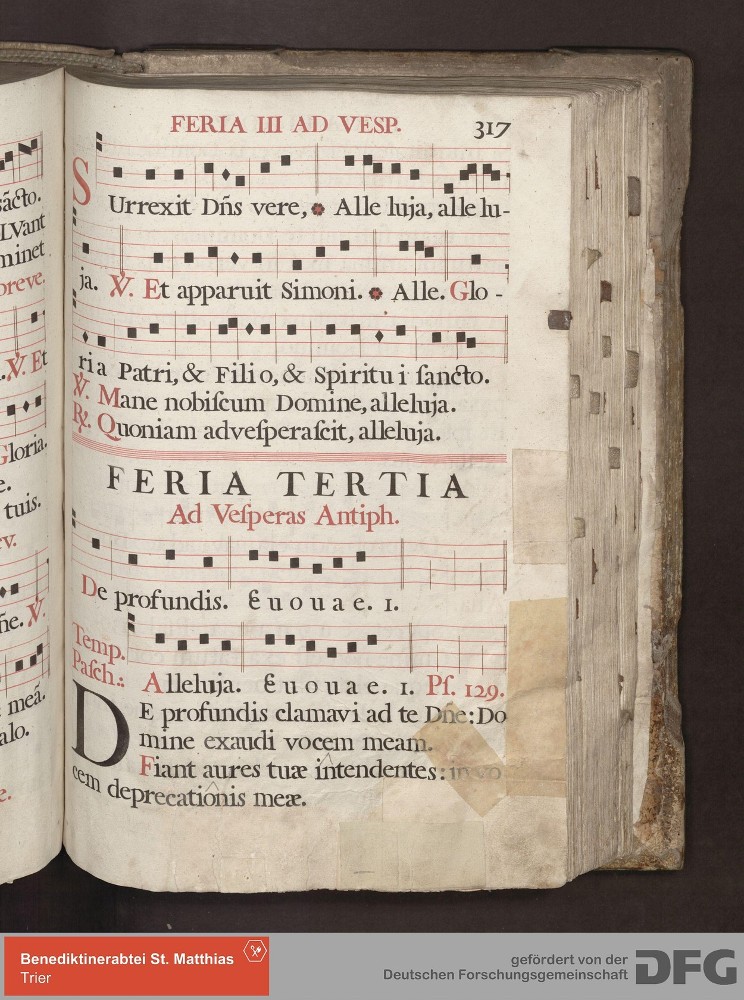 FERIA III AD VESP. 317
SUrrexit Dñs vere, Alle luja, alle lu-
ja. ℣. Et apparuit Simoni. Alle. Glo-
ria Patri, & Filio, & Spiritui ſancto.
℣. Mane nobiſcum Domine, alleluja.
℟. Quoniam adveſperaſcit, alleluja.
FERIA TERTIA
Ad Veſperas Antiph.
De profundis. Euouae. 1.
Temp. Paſch.:
Alleluja. Euouae. 1. Pſ. 129.
DE profundis clamavi ad te Dñe: Do
mine exaudi vocem meam.
Fiant aures tuæ intendentes: in vo
cem deprecationis meæ.
sãcto.
LVant
minet
breve.
℣. Et
Gloria.
e.
tuis.
ñe. ℣.
meã.
alo.
e.
Benediktinerabtei St. Matthias
Trier
gefördert von der
Deutschen Forschungsgemeinschaft DFG